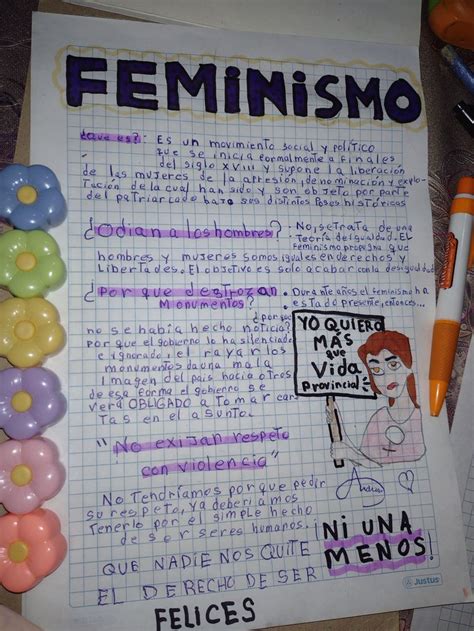 FEMINISMO
¿Que es?: Es un movimiento social y político
que se inicia formalmente a finales
del siglo XVIII y supone la liberación
de las mujeres de la opresión, denominación y explo-
tación de la cual han sido y son objeto por parte
del patriarcado bajo sus distintos fases históricas
¿Odian a los hombres? : No, se trata de una
Teoría de Igualdad. EL
feminismo propugna que
hombres y mujeres somos iguales en derechos y
Libertades. El objetivo es solo acabar con la desigualdad
¿Por que destrozan
monumentos?
: Durante años el feminismo ha
estado presente, entonces...
¿por que
no se había hecho noticia?
Por que el gobierno lo ha silenciado
e ignorado, el rayar los
monumentos da una mala
imagen del país hacia otros
de esa forma el gobierno se
verá OBLIGADO a tomar car-
tas en el asunto.
YO QUIERO
MÁS
que
Vida
Provincial
"No exijan respeto
con violencia"
No Tendríamos por que pedir
su respeto, ya deberíamos
Tenerlo por el simple hecho
de ser seres humanos.
¡NI UNA
MENOS!
QUE NADIE NOS QUITE
EL DERECHO DE SER
FELICES
Justus